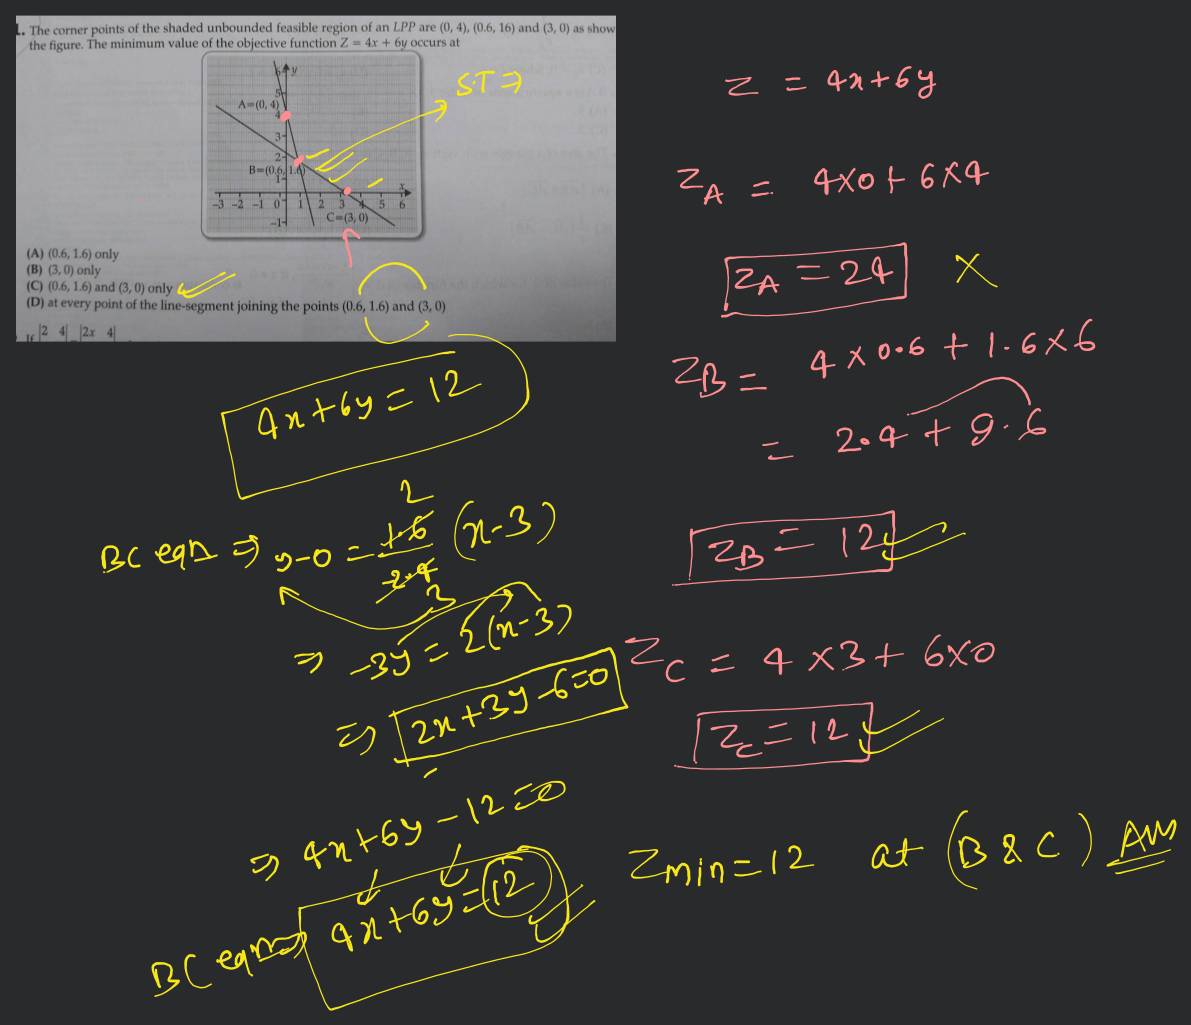 1. The corner points of the shaded unbounded feasible region of an LPP are (0, 4), (0.6, 16) and (3, 0) as show
the figure. The minimum value of the objective function Z = 4x + 6y occurs at
y
6
5
A=(0, 4)
4
3
2
B=(0.6, 1.6)
1
x
-3 -2 -1 0 1 2 3 4 5 6
C=(3, 0)
-1
(A) (0.6, 1.6) only
(B) (3, 0) only
(C) (0.6, 1.6) and (3, 0) only
(D) at every point of the line-segment joining the points (0.6, 1.6) and (3, 0)
If |2 4| |2x 4|
S.T ⇒
4x+6y = 12
BC eqn ⇒ y-0 = 1.6/-2.4 (x-3)
2
3
⇒ -3y = 2(x-3)
⇒ 2x+3y-6=0
⇒ 4x+6y-12=0
BC eqn ⇒ 4x+6y=12
Z = 4x+6y
Z_A = 4×0+6×4
Z_A = 24 ×
Z_B = 4×0.6 + 1.6×6
= 2.4 + 9.6
Z_B = 12
Z_C = 4×3+ 6×0
Z_C = 12
Zmin=12 at (B & C) Ans